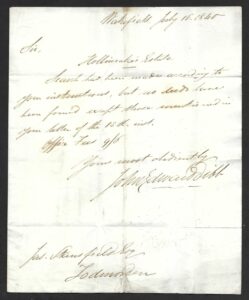 Wakefield July 16. 1840
Sir,
Estate
Search has been made according to
your instructions, but no deeds have
been found except those mentioned in
your letter of the 13th inst.
Office Fees 9/6
Yours most obediently
John Edward Dibb
Jas. Stansfield Esq
Todmorden